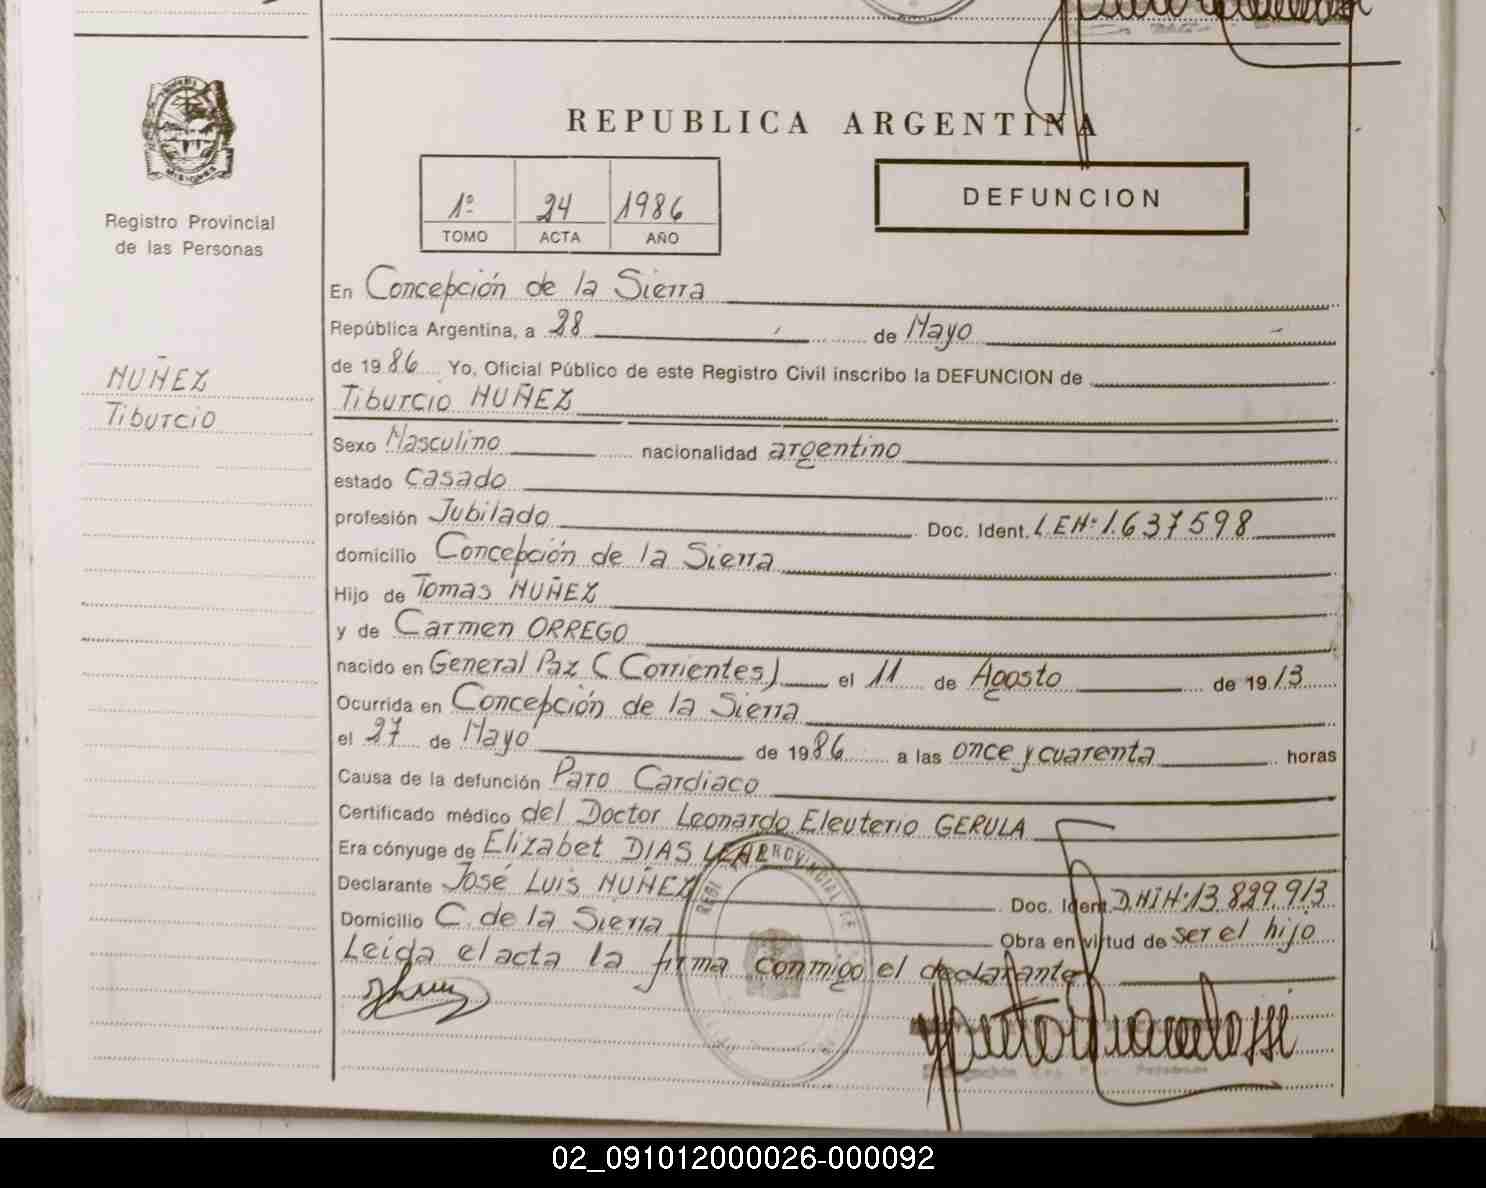 REPUBLICA ARGENTINA
Registro Provincial
de las Personas
1º 24 1986
TOMO ACTA AÑO
DEFUNCION
NUÑEZ
Tiburcio
En Concepción de la Sierra
República Argentina, a 28 de Mayo
de 1986 Yo, Oficial Público de este Registro Civil inscribo la DEFUNCION de
Tiburcio NUÑEZ
Sexo Masculino nacionalidad argentino
estado Casado
profesión Jubilado Doc. Ident. LENº1.637598
domicilio Concepción de la Sierra
Hijo de Tomas NUÑEZ
y de Carmen ORREGO
nacido en General Paz (Corrientes) el 11 de Agosto de 1913
Ocurrida en Concepción de la Sierra
el 27 de Mayo de 1986 a las once y cuarenta horas
Causa de la defunción Paro Cardiaco
Certificado médico del Doctor Leonardo Eleuterio GERULA
Era cónyuge de Elizabet DIAS LEAL
Declarante José Luis NUÑEZ Doc. Ident. DNINº13.829.913
Domicilio C. de la Sierra Obra en virtud de ser el hijo
Leida el acta la firma conmigo el declarante
02_091012000026-000092